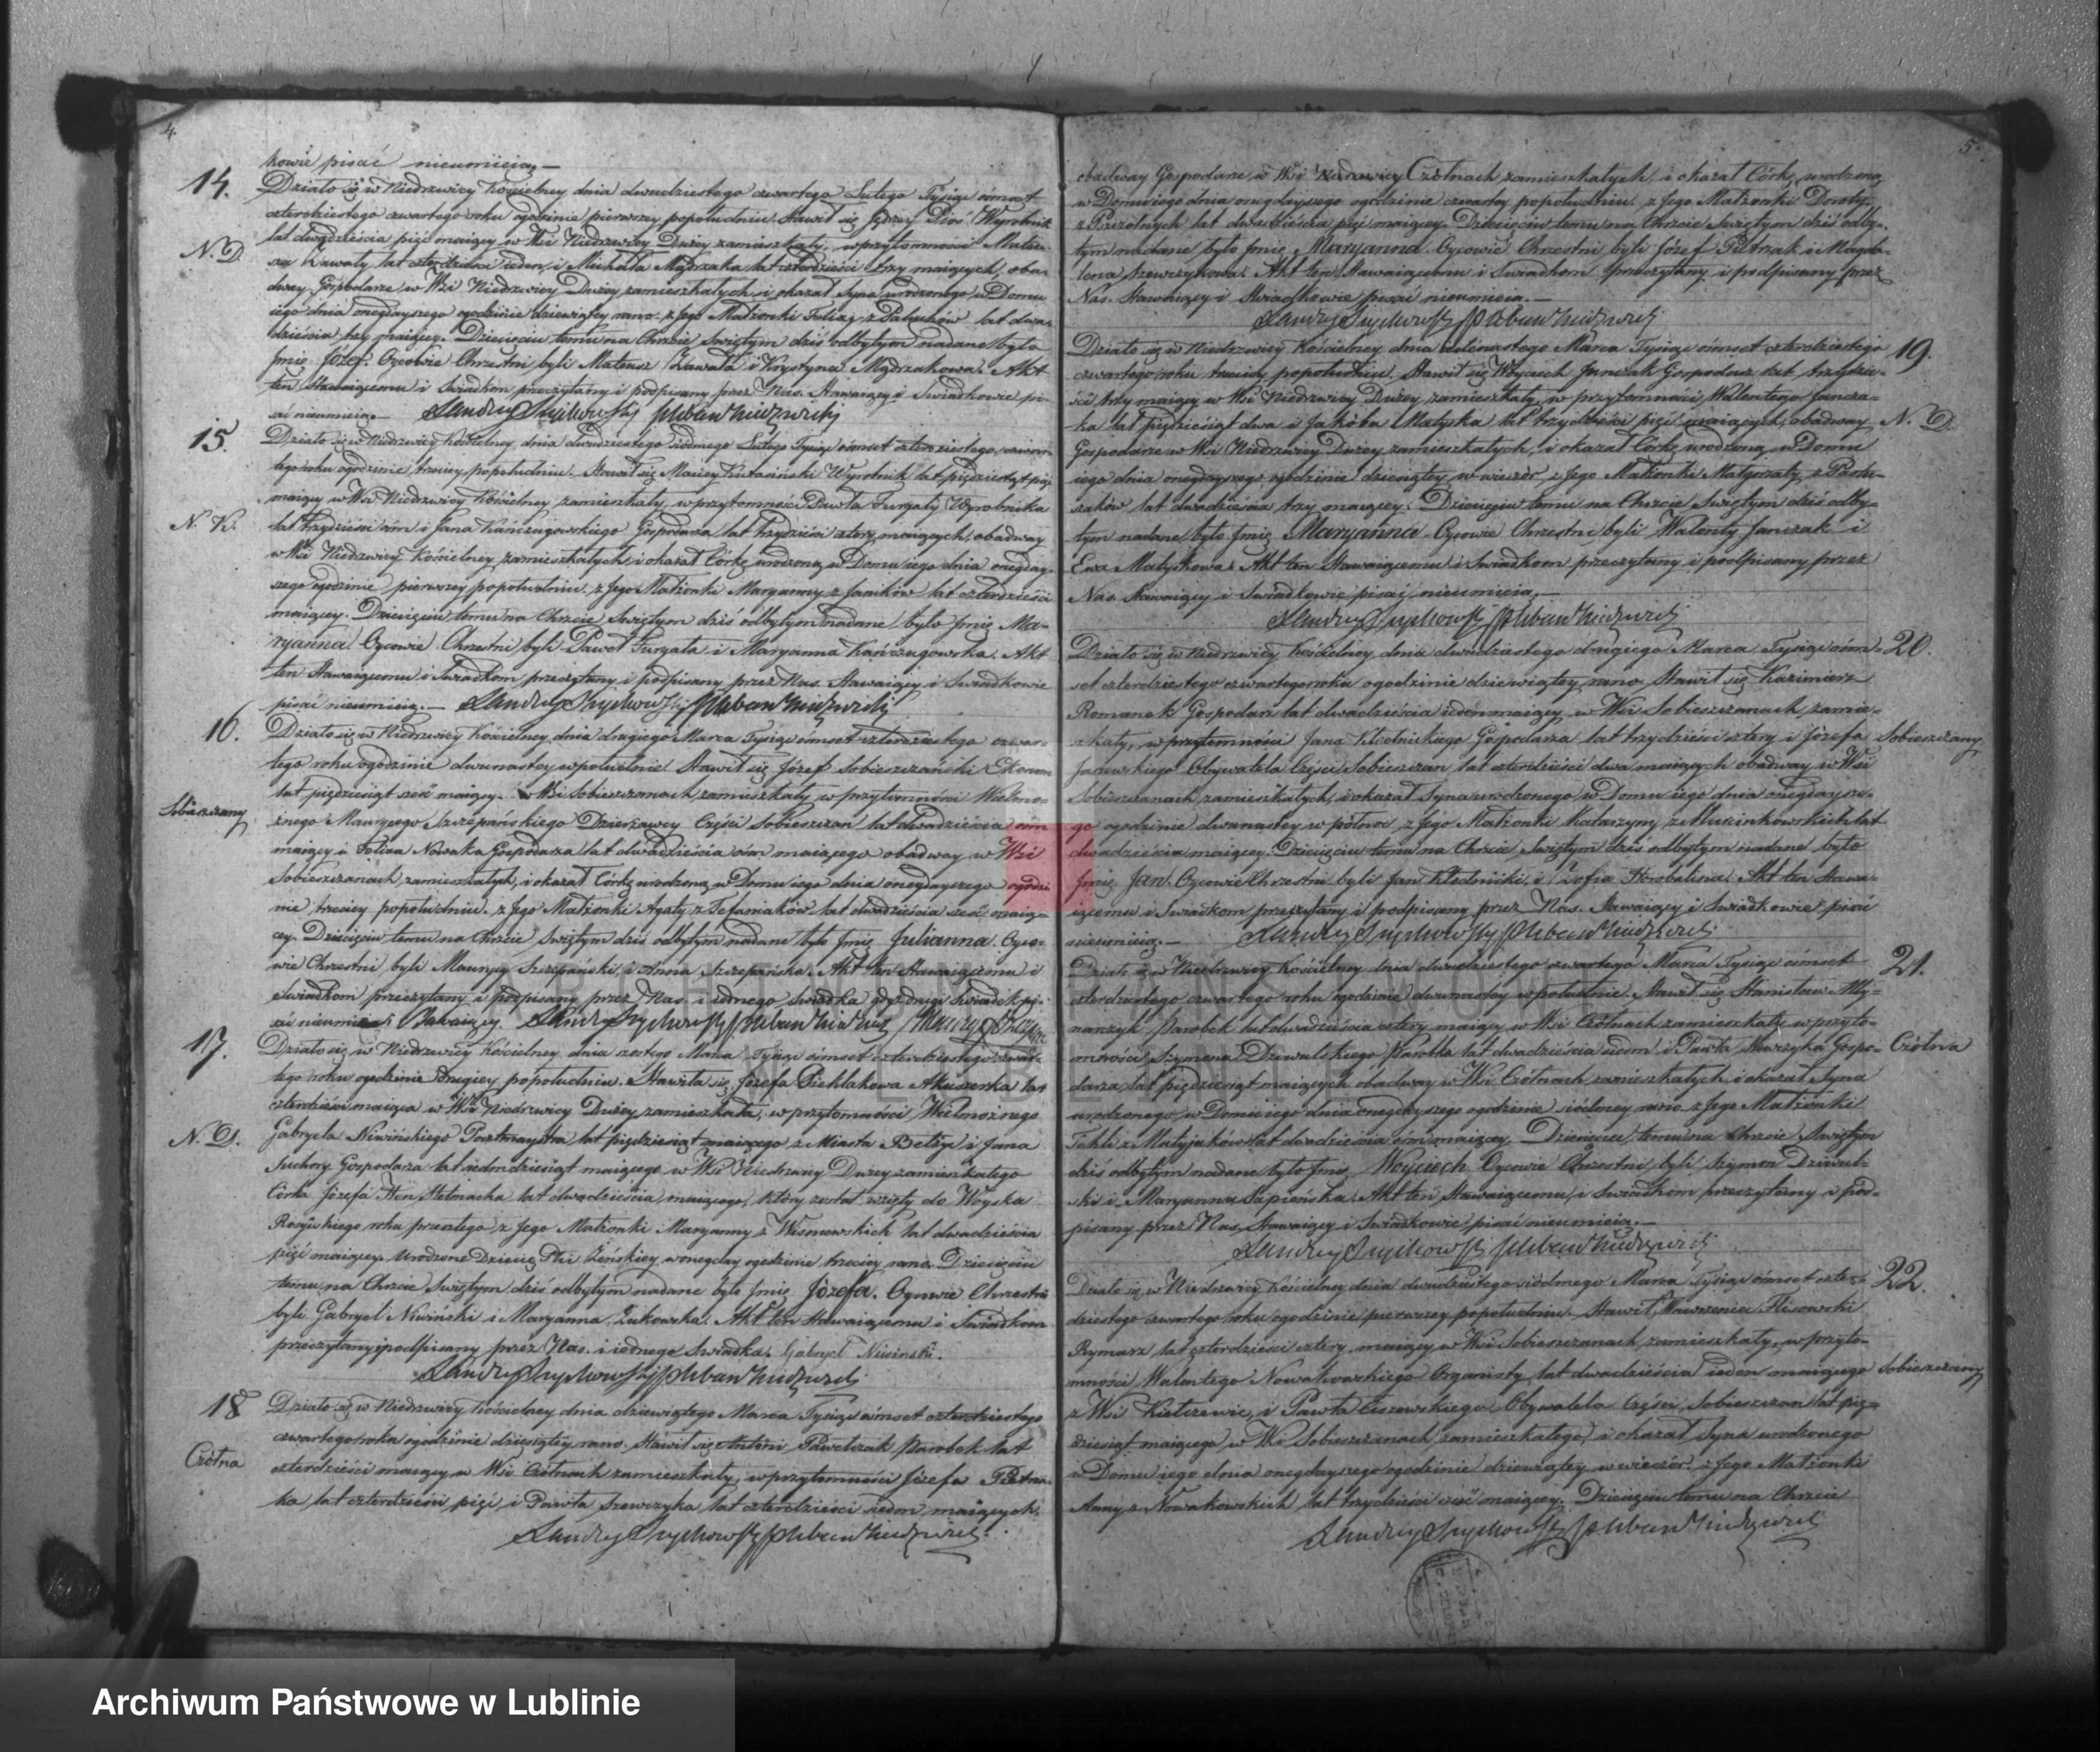 4.
kowie pisać nieumieią. —
14.
N. D.
Działo się w Niedrzwicy Kościelney dnia dwudziestego czwartego Lutego Tysiąc ośmset
czterdziestego czwartego roku o godzinie pierwszey popołudniu. Stawił się Józef Pioś Wyrobnik
lat dwadzieścia pięć maiący w Wsi Niedrzwicy Dużey zamieszkały, w przytomności Mateu-
sza Zawały, lat czterdzieści ieden, i Michała Mądrzaka lat czterdzieści trzy maiących, oba-
dway Gospodarze w Wsi Niedrzwicy Dużey zamieszkałych, i okazał Syna urodzonego w Domu
iego dnia onegdayszego o godzinie dziewiątey rano, z Jego Małżonki Julią z Paluchów lat dwa-
dzieścia trzy maiącey. Dziecięciu temu na Chrzcie Swiętym dziś odbytym nadane było
Jmię Józef. Oycowie Chrzestni byli Mateusz Zawała i Krystyna Mądrzakowa. Akt
ten Stawaiącemu i Swiadkom przeczytany i podpisany przez Nas. Stawaiący i Swiadkowie pi-
sać nieumieią. —
15.
N. K.
Działo się w Niedrzwicy Kościelney dnia dwudziestego siódmego Lutego Tysiąc ośmset czterdziestego czwar-
tego roku o godzinie trzeciey popołudniu. Stawił się Maciey Kutasiński Wyrobnik lat pięćdziesiąt pięć
maiący w Wsi Niedrzwicy Kościelney zamieszkały, w przytomności Pawła Furgały Wyrobnika
lat trzydzieści ośm i Jana Kańczugowskiego Gospodarza lat trzydzieści cztery maiących, obadway
w Wsi Niedrzwicy Kościelney zamieszkałych, i okazał Córkę urodzoną w Domu iego dnia onegday-
szego o godzinie pierwszey popołudniu, z Jego Małżonki Maryanny z Janików lat czterdzieści
maiącey. Dziecięciu temu na Chrzcie Swiętym dziś odbytym nadane było Jmię Ma-
ryanna. Oycowie Chrzestni byli Paweł Furgała i Maryanna Kańczugowska. Akt
ten Stawaiącemu i Swiadkom przeczytany i podpisany przez Nas. Stawaiący i Swiadkowie
pisać nieumieią. —
16.
Sobieszczany
Działo się w Niedrzwicy Kościelney dnia drugiego Marca Tysiąc ośmset czterdziestego czwar-
tego roku o godzinie dwunastey w południe. Stawił się Józef Sobieszczański Ekonom
lat pięćdziesiąt sześć maiący w Wsi Sobieszczanach zamieszkały, w przytomności Wielmo-
żnego Maurycego Szczepańskiego Dzierżawcy Części Sobieszczan lat dwadzieścia ośm
maiący i Felixa Nowaka Gospodarza lat dwadzieścia ośm maiącego obadway w Wsi
Sobieszczanach zamieszkałych, i okazał Córkę urodzoną w Domu iego dnia onegdayszego o godzi-
nie trzeciey popołudniu, z Jego Małżonki Agaty z Stefaniaków lat dwadzieścia sześć maią-
cey. Dziecięciu temu na Chrzcie Swiętym dziś odbytym nadane było Jmię Julianna. Oyco-
wie Chrzestni byli Maurycy Szczepański i Anna Szczepańska. Akt ten Stawaiącemu i
Swiadkom przeczytany i podpisany przez Nas i iednego Swiadka gdyż drugi Swiadek pi-
sać nieumie i Stawaiący.
17.
N. D.
Działo się w Niedrzwicy Kościelney dnia szostego Marca Tysiąc ośmset czterdziestego czwar-
tego roku o godzinie drugiey popołudniu. Stawiła się Józefa Piehlakowa Akuszerka lat
czterdzieści maiąca w Wsi Niedrzwicy Dużey zamieszkała, w przytomności Wielmożnego
Gabryela Niwińskiego Pocztmaystra lat pięćdziesiąt maiącego z Miasta Bełżyc i Jana
Suchory Gospodarza lat siedmdziesiąt maiącego w Wsi Niedrzwicy Dużey zamieszkałego
maiącego, który został wzięty do Woyska
Rosyiskiego roku przeszłego, z Jego Małżonki Maryanny z Wisnowskich lat dwadzieścia
pięć maiącey. Urodzone Dziecię Płci Żeńskiey w onegday o godzinie trzeciey rano. Dziecięciu
temu na Chrzcie Swiętym dziś odbytym nadane było Jmię Józefa. Oycowie Chrzestni
byli Gabryel Niwiński i Maryanna Żukowska. Akt ten Stawaiącemu i Swiadkom
przeczytany i podpisany przez Nas i iednego Swiadka. Gabryel Niwinski.
18
Czółna
Działo się w Niedrzwicy Kościelney dnia dziewiątego Marca Tysiąc ośmset czterdziestego
czwartego roku o godzinie dziesiątey rano. Stawił się Antoni Pawelczak Parobek lat
czterdzieści maiący w Wsi Czółnach zamieszkały, w przytomności Józefa Pietrza-
ka lat czterdzieści pięć i Pawła Szewczyka lat czterdzieści siedm maiących,
5.
obadway Gospodarze w Wsi Czółnach zamieszkałych, i okazał Córkę urodzoną
w Domu iego dnia onegdayszego o godzinie czwartey popołudniu, z Jego Małżonki Doroty
lat dwadzieścia pięć maiącey. Dziecięciu temu na Chrzcie Swiętym dziś odby-
tym nadane było Jmię Maryanna. Oycowie Chrzestni byli Józef Pietrzak i Magda-
lena Szewczykowa. Akt ten Stawaiącemu i Swiadkom przeczytany i podpisany przez
Nas. Stawaiący i Swiadkowie pisać nieumieią. —
19.
N. D.
Działo się w Niedrzwicy Kościelney dnia iedenastego Marca Tysiąc ośmset czterdziestego
czwartego roku trzeciey popołudniu. Stawił się Woyciech Janczak Gospodarz lat trzydzie-
ści trzy maiący w Wsi Niedrzwicy Dużey zamieszkały, w przytomności Walentego Jancza-
ka lat pięćdziesiąt dwa i Jakóba Matyska lat trzydzieści pięć maiących, obadway
Gospodarze w Wsi Niedrzwicy Dużey zamieszkałych, i okazał Córkę urodzoną w Domu
iego dnia onegdayszego o godzinie dziesiątey w wieczór z Jego Małżonki Małgorzaty z Pastu-
szaków lat dwadzieścia trzy maiącey. Dziecięciu temu na Chrzcie Swiętym dziś odby-
tym nadane było Jmię Maryanna. Oycowie Chrzestni byli Walenty Janczak i
Ewa Matyskowa. Akt ten Stawaiącemu i Swiadkom przeczytany i podpisany przez
Nas. Stawaiący i Swiadkowie pisać nieumieią. —
20.
Sobieszczany
Działo się w Niedrzwicy Kościelney dnia dwudziestego drugiego Marca Tysiąc ośm-
set czterdziestego czwartego roku o godzinie dziewiątey rano. Stawił się Kazimierz
Romanek Gospodarz lat dwadzieścia ieden maiący w Wsi Sobieszczanach zamie-
szkały, w przytomności Jana Kłodnickiego Gospodarza lat trzydzieści cztery i Józefa
Obywatela Części Sobieszczan lat czterdzieści dwa maiących obadway w Wsi
Sobieszczanach zamieszkałych, i okazał Syna urodzonego w Domu iego dnia onegdaysze-
go o godzinie dwunastey w północ, z Jego Małżonki Katarzyny z Marcinkowskich lat
dwadzieścia maiącey. Dziecięciu temu na Chrzcie Swiętym dziś odbytym nadane było
Jmię Jan. Oycowie Chrzestni byli Jan Kłodnicki i Zofia Akt ten Stawa-
iącemu i Swiadkom przeczytany i podpisany przez Nas. Stawaiący i Swiadkowie pisać
nieumieią. —
21.
Czółna
Działo się w Niedrzwicy Kościelney dnia dwudziestego czwartego Marca Tysiąc ośmset
czterdziestego czwartego roku o godzinie dwunastey w południe. Stawił się Stanisław Mły-
narczyk Parobek lat dwadzieścia cztery maiący w Wsi Czółnach zamieszkały, w przyto-
mności Szymona Dziwulskiego Parobka lat dwadzieścia siedm i Pawła Gospo-
darza lat pięćdziesiąt maiących obadway w Wsi Czółnach zamieszkałych, i okazał Syna
urodzonego w Domu iego dnia onegdayszego o godzinie siódmey rano, z Jego Małżonki
Tekli z Matyjaków lat dwadzieścia ośm maiącey. Dziecięciu temu na Chrzcie Swiętym
dziś odbytym nadane było Jmię Woyciech. Oycowie Chrzestni byli Szymon Dziwul-
ski i Maryanna Akt ten Stawaiącemu i Swiadkom przeczytany i pod-
pisany przez Nas. Stawaiący i Swiadkowie pisać nieumieią. —
22.
Sobieszczany
Działo się w Niedrzwicy Kościelney dnia dwudziestego siódmego Marca Tysiąc ośmset czter-
dziestego czwartego roku o godzinie pierwszey popołudniu. Stawił Wawrzeniec Flisowski
Rymarz lat czterdzieści cztery maiący w Wsi Sobieszczanach zamieszkały, w przyto-
mności Walentego Nowakowskiego Organisty lat dwadzieścia ieden maiącego
z Wsi Kiełczewic, i Pawła Ciszewskiego Obywatela Części Sobieszczan lat pię-
dziesiąt maiącego w Wsi Sobieszczanach zamieszkałego, i okazał Syna urodzonego
w Domu iego dnia onegdayszego o godzinie dziewiątey w wieczór, z Jego Małżonki
Anny z Nowakowskich lat trzydzieści sześć maiącey. Dziecięciu temu na Chrzcie
ARCHIWUM PAŃSTWOWE
W LUBLINIE
Archiwum Państwowe w Lublinie